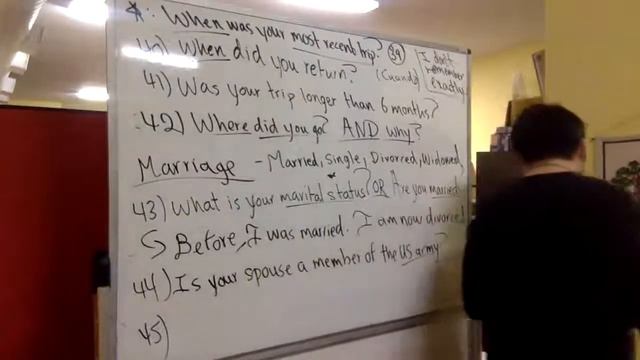 *: When was your most recent trip? (39)
40) When did you return? (Cuando)
I don't
remember
exactly
41) Was your trip longer than 6 months?
42) Where did you go? AND why?
Marriage - Married, Single, Divorced, Widowed
43) What is your marital status? OR Are you married
↳ Before, I was married. I am now divorced
44) Is your spouse a member of the US army?
45)